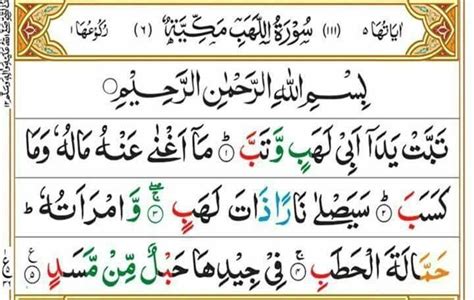 اٰیَاتُهَا ٥ (١١١) سُوْرَةُ اللَّهَبِ مَكِّیَّةٌ (٦) رُكُوْعُهَا ١
بِسْمِ اللهِ الرَّحْمٰنِ الرَّحِیْمِ
تَبَّتْ یَدَاۤ اَبِیْ لَهَبٍ وَّتَبَّ ؕ ١ مَاۤ اَغْنٰی عَنْهُ مَالُهٗ وَمَا
كَسَبَ ؕ ٢ سَیَصْلٰی نَارًا ذَاتَ لَهَبٍ ۚۖ ٣ وَّامْرَاَتُهٗ ؕ
حَمَّالَةَ الْحَطَبِ ۚ ٤ فِیْ جِیْدِهَا حَبْلٌ مِّنْ مَّسَدٍ ٥ ع